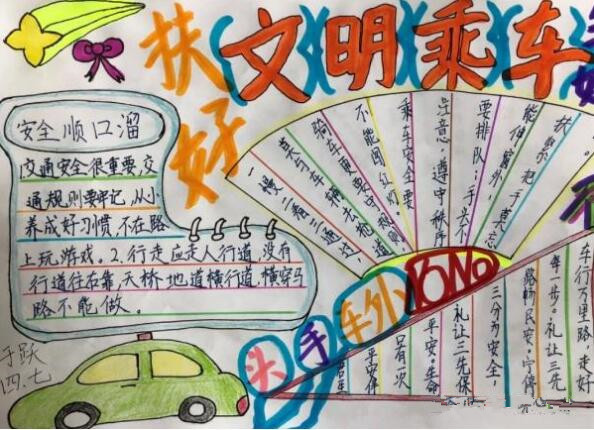 扶好
文明乘车
安全顺口溜
交通安全很重要,交
通规则要牢记,从小
养成好习惯,不在路
上玩游戏。2.行走应走人行道,没有
行道往右靠,天桥地道横行道,横穿马
路不能做。
于跃
四.七
扶紧把手莫忘
能伸窗外,
要排队;手头不
注意:遵守秩序
乘车安全要
不能闯红灯。
骑车更要守规则
莫与车辆去抢道
一慢二看三通过,
NO
头手车外
车行万里路,走好
每一步。礼让三先
路畅民安。宁停
三分为安全,
礼让三先保
平安。生命
只有一次
平安伴